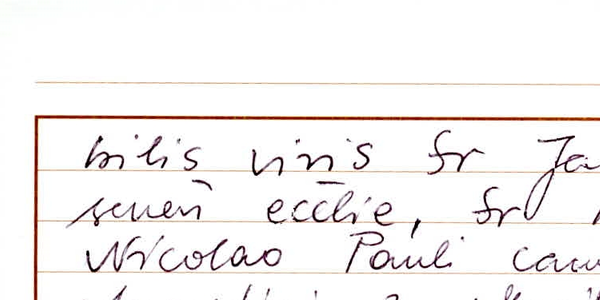 bilis viris fr Ja
senen̄ ecclīe, fr
Nicolao Pauli can